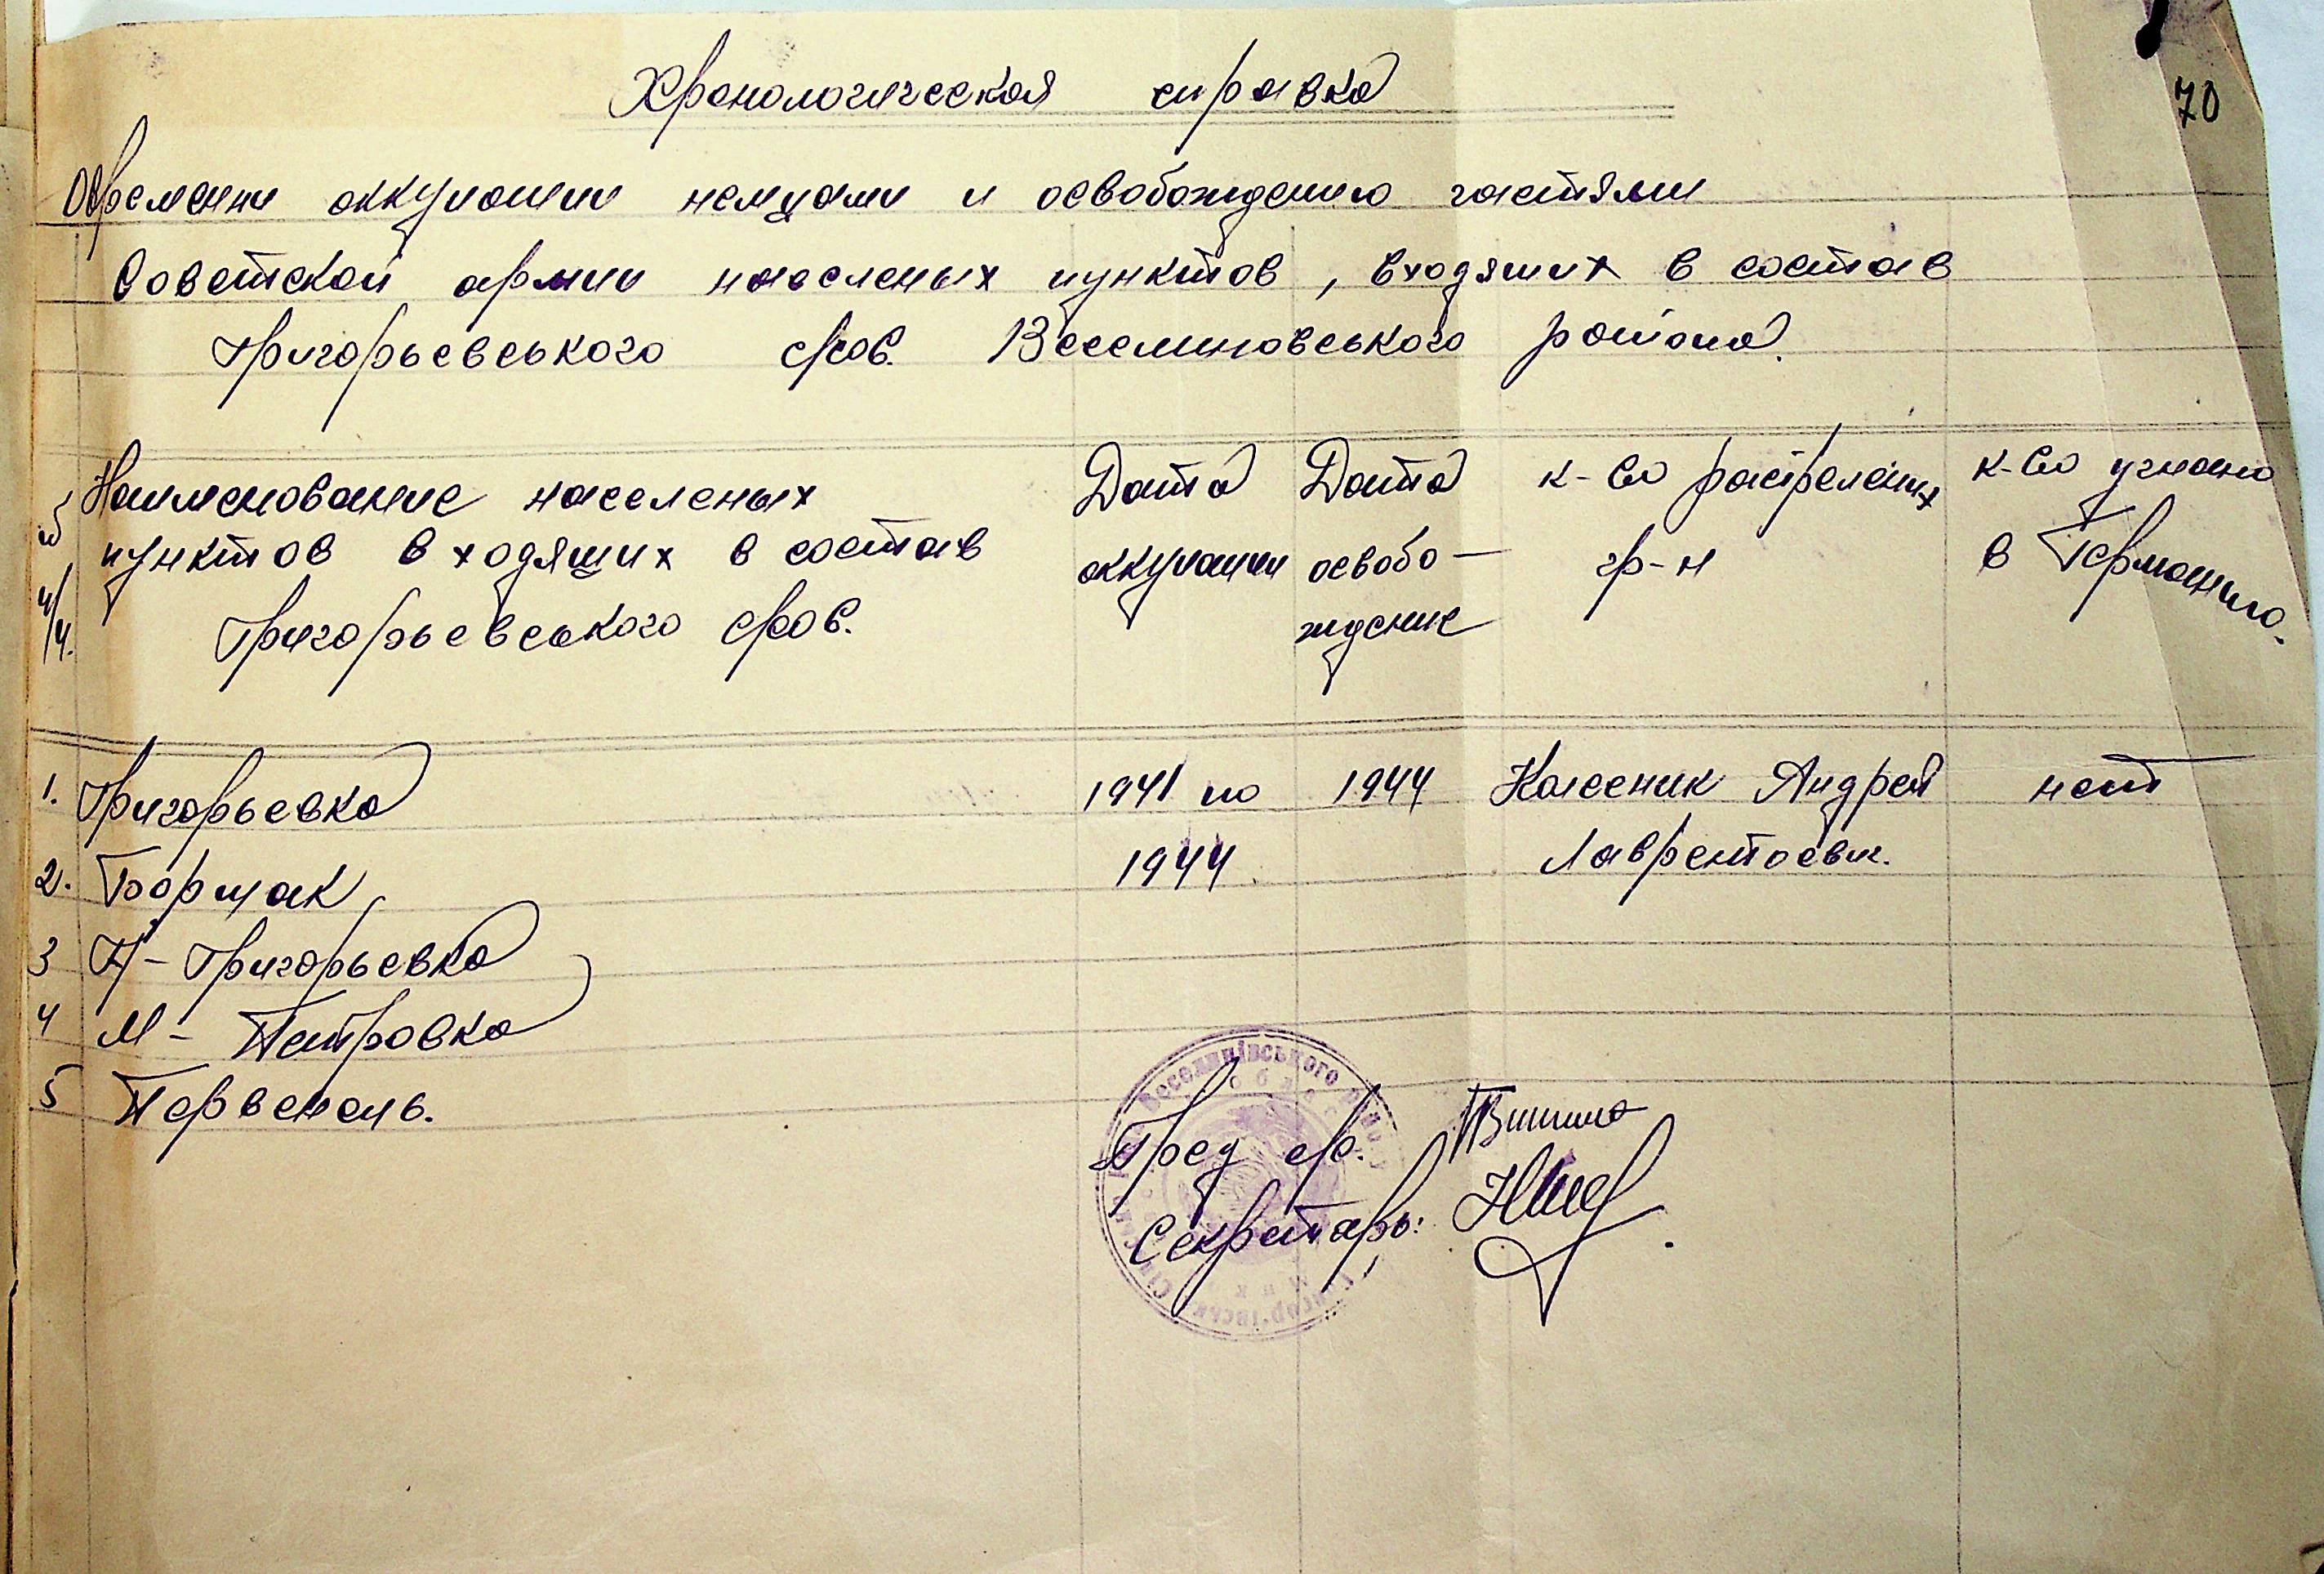 70
Хронологическая справка
О времени оккупации немцами и освобождению частями
Советской армии населеных пунктов, входящих в состав
Григорьевського с/сов. Веселиновського района.
№ п/п. Наименование населеных пунктов входящих в состав Григорьевського с/сов.
Дата оккупации
Дата освобо-
ждение
к-во растреляных гр-н
к-во угнано в Германию.
1. Григорьевка 1941 по 1944 1944 Колесник Андрей Лаврентьевич. нет
2. Бормак
3 Н-Григорьевка
4 М-Петровка
5 Первомаль.
Пред с/с.
Секретарь:
Веселинівського